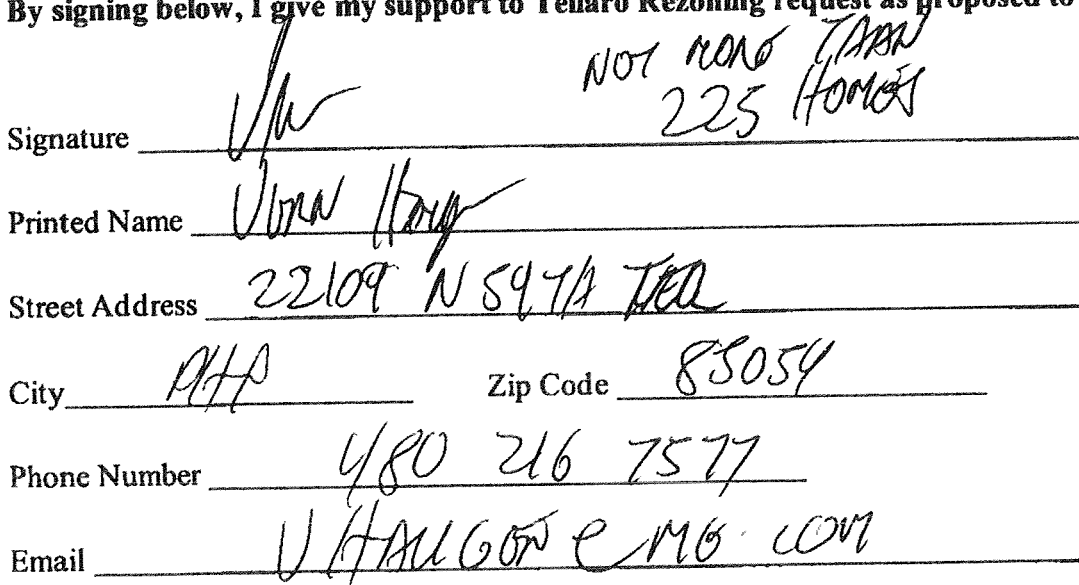 By signing below, I give my support to Tellaro Rezoning request as proposed to
NOT MORE THAN
225 HOMES
Signature
Printed Name VERN
Street Address 22109 N 54TH
City PHP Zip Code 85054
Phone Number 480 216 7577
Email VHAUGEN@MG.COM